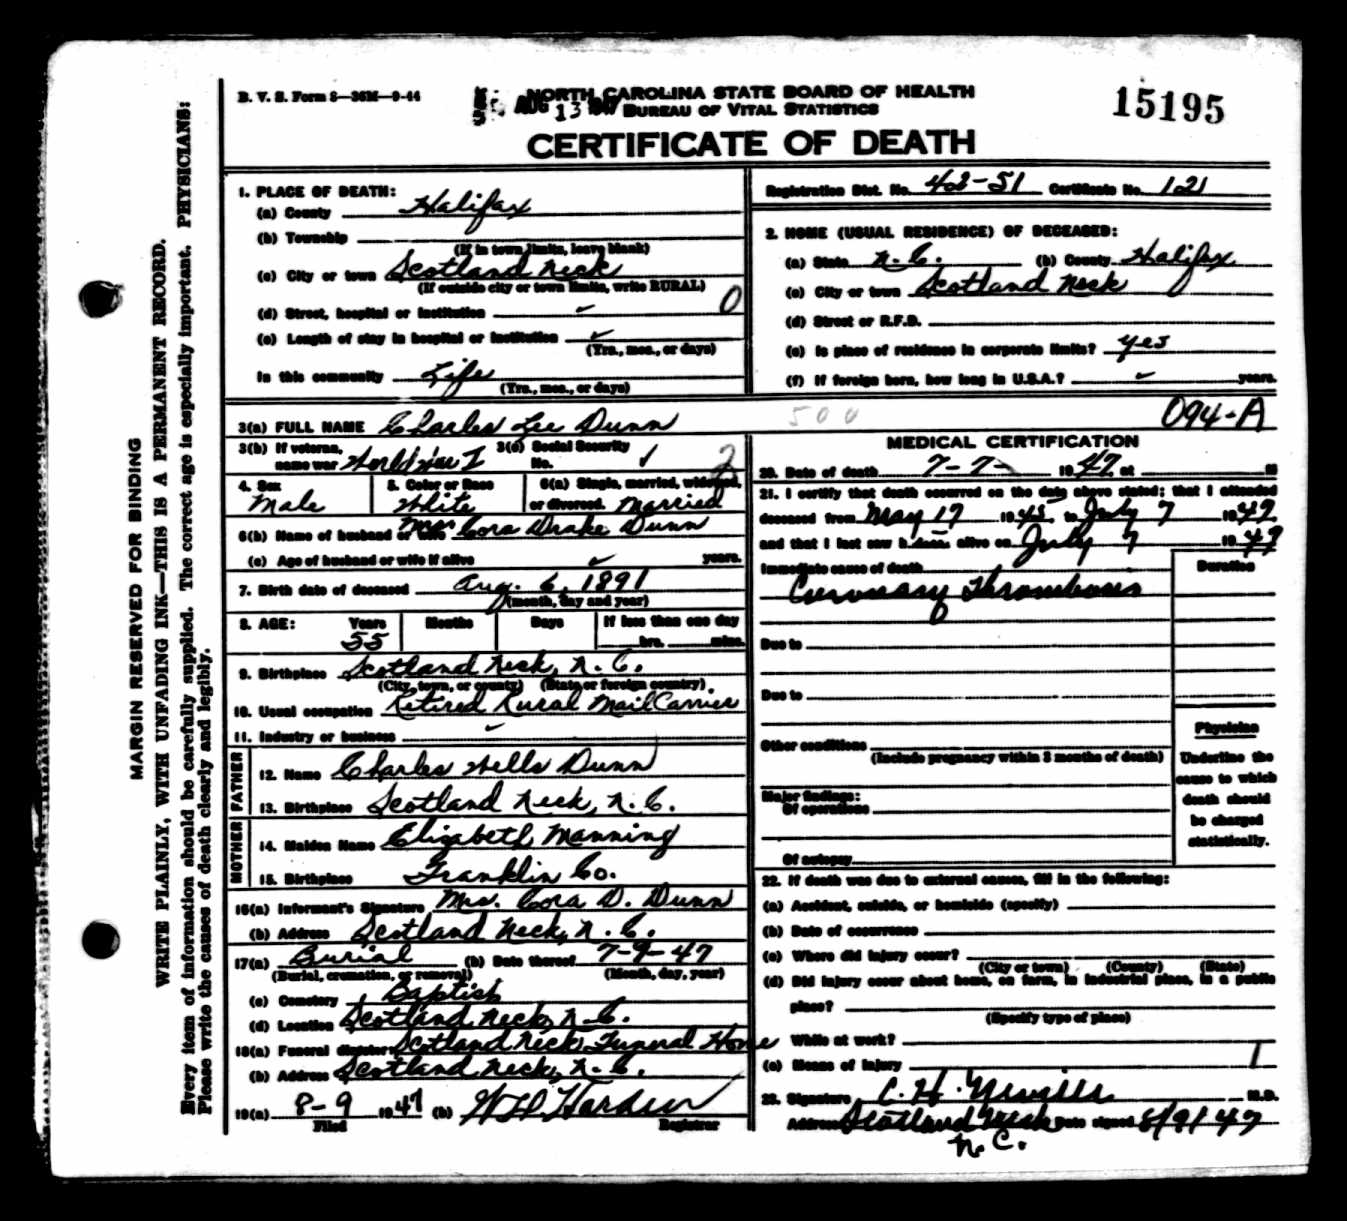 B. V. S. Form 8—36M—9-44
NORTH CAROLINA STATE BOARD OF HEALTH
AUG 13 1947
BUREAU OF VITAL STATISTICS
CERTIFICATE OF DEATH
15195
MARGIN RESERVED FOR BINDING
WRITE PLAINLY, WITH UNFADING INK—THIS IS A PERMANENT RECORD.
Every item of information should be carefully supplied. The correct age is especially important. PHYSICIANS:
Please write the causes of death clearly and legibly.
1. PLACE OF DEATH:
(a) County Halifax
(b) Township
(If in town limits, leave blank)
(c) City or town Scotland Neck
(If outside city or town limits, write RURAL)
(d) Street, hospital or institution ✓ 0
(e) Length of stay in hospital or institution ✓
(Yrs., mos., or days)
In this community Life
(Yrs., mos., or days)
Registration Dist. No. 42-51 Certificate No. 121
2. HOME (USUAL RESIDENCE) OF DECEASED:
(a) State N.C. (b) County Halifax
(c) City or town Scotland Neck
(d) Street or R.F.D.
(e) Is place of residence in corporate limits? yes
(f) If foreign born, how long in U.S.A.? ✓ years.
3(a) FULL NAME Charles Lee Dunn 500 094-A
3(b) If veteran, name war World War I 3(c) Social Security No. 1 2
4. Sex Male
5. Color or Race White
6(a) Single, married, widowed, or divorced. Married
6(b) Name of husband or wife Mrs Cora Drake Dunn
(c) Age of husband or wife if alive ✓ years.
7. Birth date of deceased Aug. 6, 1891
(month, day and year)
8. AGE: Years 55 Months Days If less than one day
hrs. mins.
9. Birthplace Scotland Neck, N.C.
(City, town, or county) (State or foreign country)
10. Usual occupation Retired Rural Mail Carrier
11. Industry or business ✓
FATHER
12. Name Charles Wells Dunn
13. Birthplace Scotland Neck, N.C.
MOTHER
14. Maiden Name Elizabeth Manning
15. Birthplace Franklin Co.
16(a) Informant's Signature Mrs. Cora D. Dunn
(b) Address Scotland Neck, N.C.
17(a) Burial (b) Date thereof 7-9-47
(Burial, cremation, or removal) (Month, day, year)
(c) Cemetery Baptist
(d) Location Scotland Neck, N.C.
18(a) Funeral director Scotland Neck Funeral Home
(b) Address Scotland Neck, N.C.
19(a) 8-9 1947 (b) Harden
Filed Registrar
MEDICAL CERTIFICATION
20. Date of death 7-7- 1947 at M
21. I certify that death occurred on the date above stated; that I attended
deceased from May 17 1945 to July 7 1947
and that I last saw h alive on July 7 1947
Immediate cause of death Duration
Coronary Thrombosis
Due to
Due to
Other conditions
(Include pregnancy within 3 months of death)
Major findings:
Of operations
Of autopsy
Physician
Underline the
cause to which
death should
be charged
statistically.
22. If death was due to external causes, fill in the following:
(a) Accident, suicide, or homicide (specify)
(b) Date of occurrence
(c) Where did injury occur?
(City or town) (County) (State)
(d) Did injury occur about home, on farm, in industrial place, in a public
place?
(Specify type of place)
While at work?
(e) Means of injury 1
23. Signature C. H. M.D.
Address Scotland Neck Date signed 8/9/47
N.C.